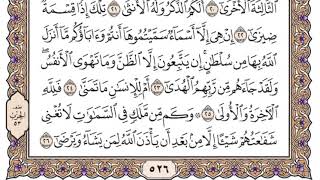 ٱلثَّالِثَةَ ٱلْأُخْرَىٰٓ ٢٠ أَلَكُمُ ٱلذَّكَرُ وَلَهُ ٱلْأُنثَىٰ ٢١ تِلْكَ إِذًا قِسْمَةٌ
ضِيزَىٰٓ ٢٢ إِنْ هِىَ إِلَّآ أَسْمَآءٌ سَمَّيْتُمُوهَآ أَنتُمْ وَءَابَآؤُكُم مَّآ أَنزَلَ
ٱللَّهُ بِهَا مِن سُلْطَٰنٍ إِن يَتَّبِعُونَ إِلَّا ٱلظَّنَّ وَمَا تَهْوَى ٱلْأَنفُسُ
وَلَقَدْ جَآءَهُم مِّن رَّبِّهِمُ ٱلْهُدَىٰٓ ٢٣ أَمْ لِلْإِنسَٰنِ مَا تَمَنَّىٰ ٢٤ فَلِلَّهِ
ٱلْأٓخِرَةُ وَٱلْأُولَىٰ ٢٥ وَكَم مِّن مَّلَكٍ فِى ٱلسَّمَٰوَٰتِ لَا تُغْنِى
شَفَٰعَتُهُمْ شَيْـًٔا إِلَّا مِنۢ بَعْدِ أَن يَأْذَنَ ٱللَّهُ لِمَن يَشَآءُ وَيَرْضَىٰٓ ٢٦
الحزب
٥٣
٥٢٦